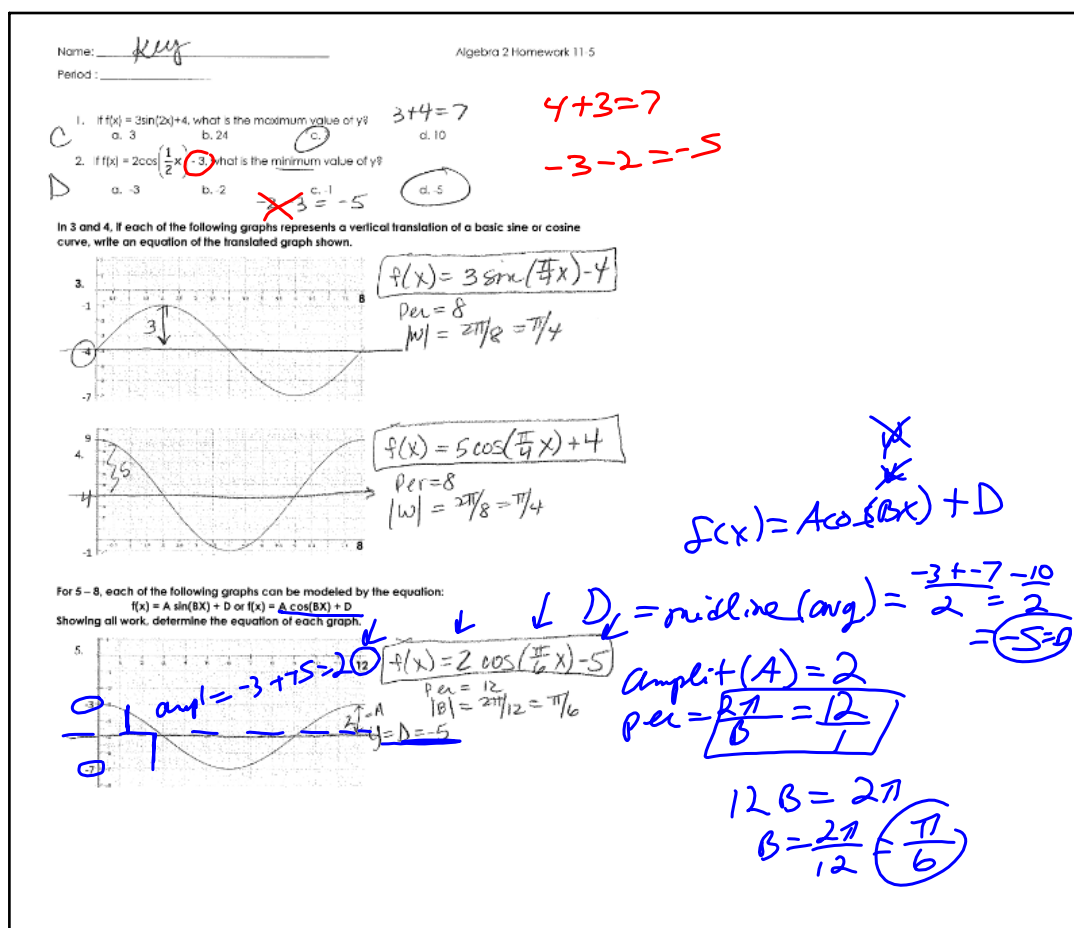 Name: Key
Algebra 2 Homework 11-5
Period :
1. If f(x) = 3sin(2x)+4, what is the maximum value of y? 3+4=7
C a. 3 b. 24 c. d. 10
4+3=7
2. If f(x) = 2cos(1/2 x) - 3, what is the minimum value of y?
-3-2=-5
D a. -3 b. -2 c. -1 d. -5
-2-3 = -5
In 3 and 4, if each of the following graphs represents a vertical translation of a basic sine or cosine
curve, write an equation of the translated graph shown.
3.
f(x) = 3 sin(π/4 x)-4
Per = 8
|W| = 2π/8 = π/4
8
-1
3
-4
-7
4.
f(x) = 5 cos(π/4 x)+4
Per=8
|W| = 2π/8 = π/4
9
5
4
-1
8
f(x) = A cos(BX) + D
For 5 – 8, each of the following graphs can be modeled by the equation:
f(x) = A sin(BX) + D or f(x) = A cos(BX) + D
Showing all work, determine the equation of each graph.
D = midline (avg) = -3+-7/2 = -10/2
= -5=D
5.
12
f(x) = 2 cos(π/6 x)-5
Per = 12
|B| = 2π/12 = π/6
ampl = -3 + +5 = 2
-3
2
-A
y = D = -5
-7
amplit (A) = 2
per = 2π/B = 12/1
12B = 2π
B = 2π/12 = π/6